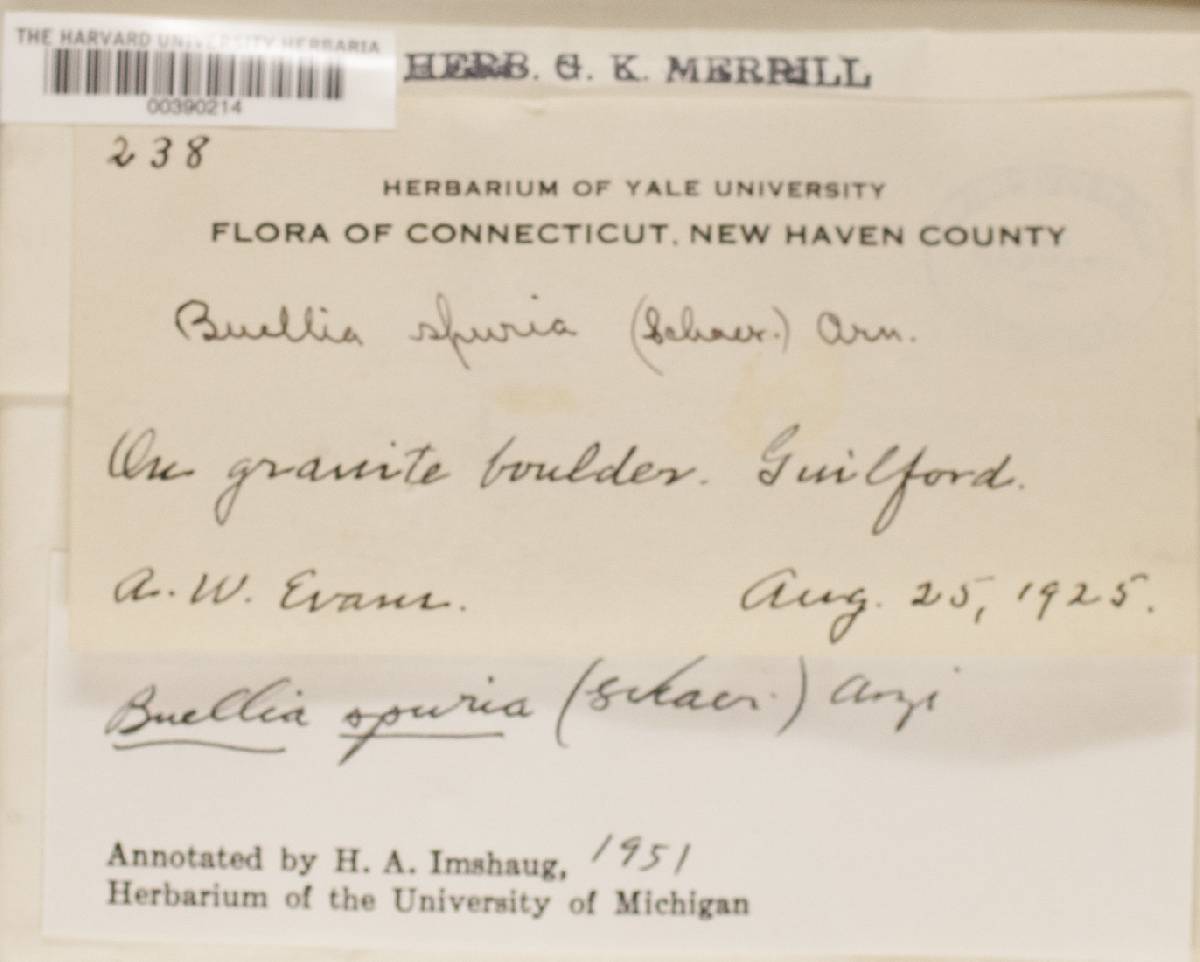 THE HARVARD UNIVERSITY HERBARIA
00390214
HERB. G. K. MERRILL
238
HERBARIUM OF YALE UNIVERSITY
FLORA OF CONNECTICUT, NEW HAVEN COUNTY
Buellia spuria (Schaer.) Arn.
On granite boulder. Guilford.
A. W. Evans. Aug. 25, 1925.
Buellia spuria (Schaer.) Anzi
Annotated by H. A. Imshaug, 1951
Herbarium of the University of Michigan